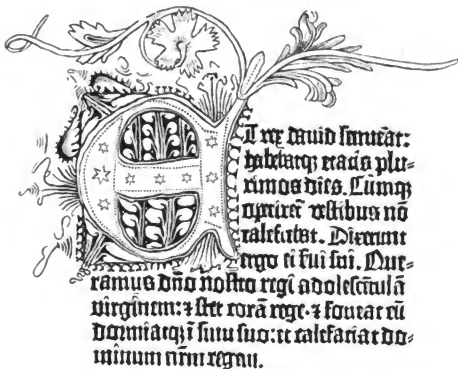 ET rex dauid senuerat:
habebatq; etatis plu-
rimos dies. Cumq;
operiret᷑ vestibus nō
calefiebat. Dixerunt
ergo ei ſui ſui. Que-
ramus dn̄o noſtro regi adoleſcētulā
virginem: ⁊ ſtet corā rege· ⁊ foueat eū
dormiatq; ī ſinu ſuo: et calefaciat do-
minum nr̄m regem.